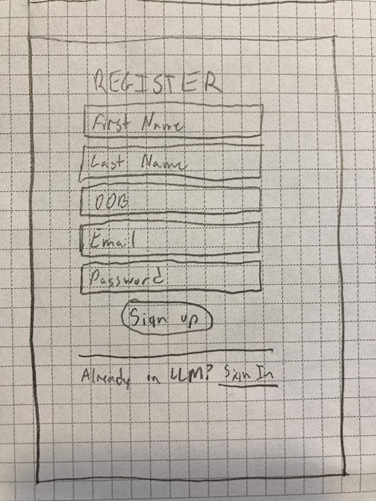 REGISTER
First Name
Last Name
DOB
Email
Password
Sign up
Already in LLM? Sign In